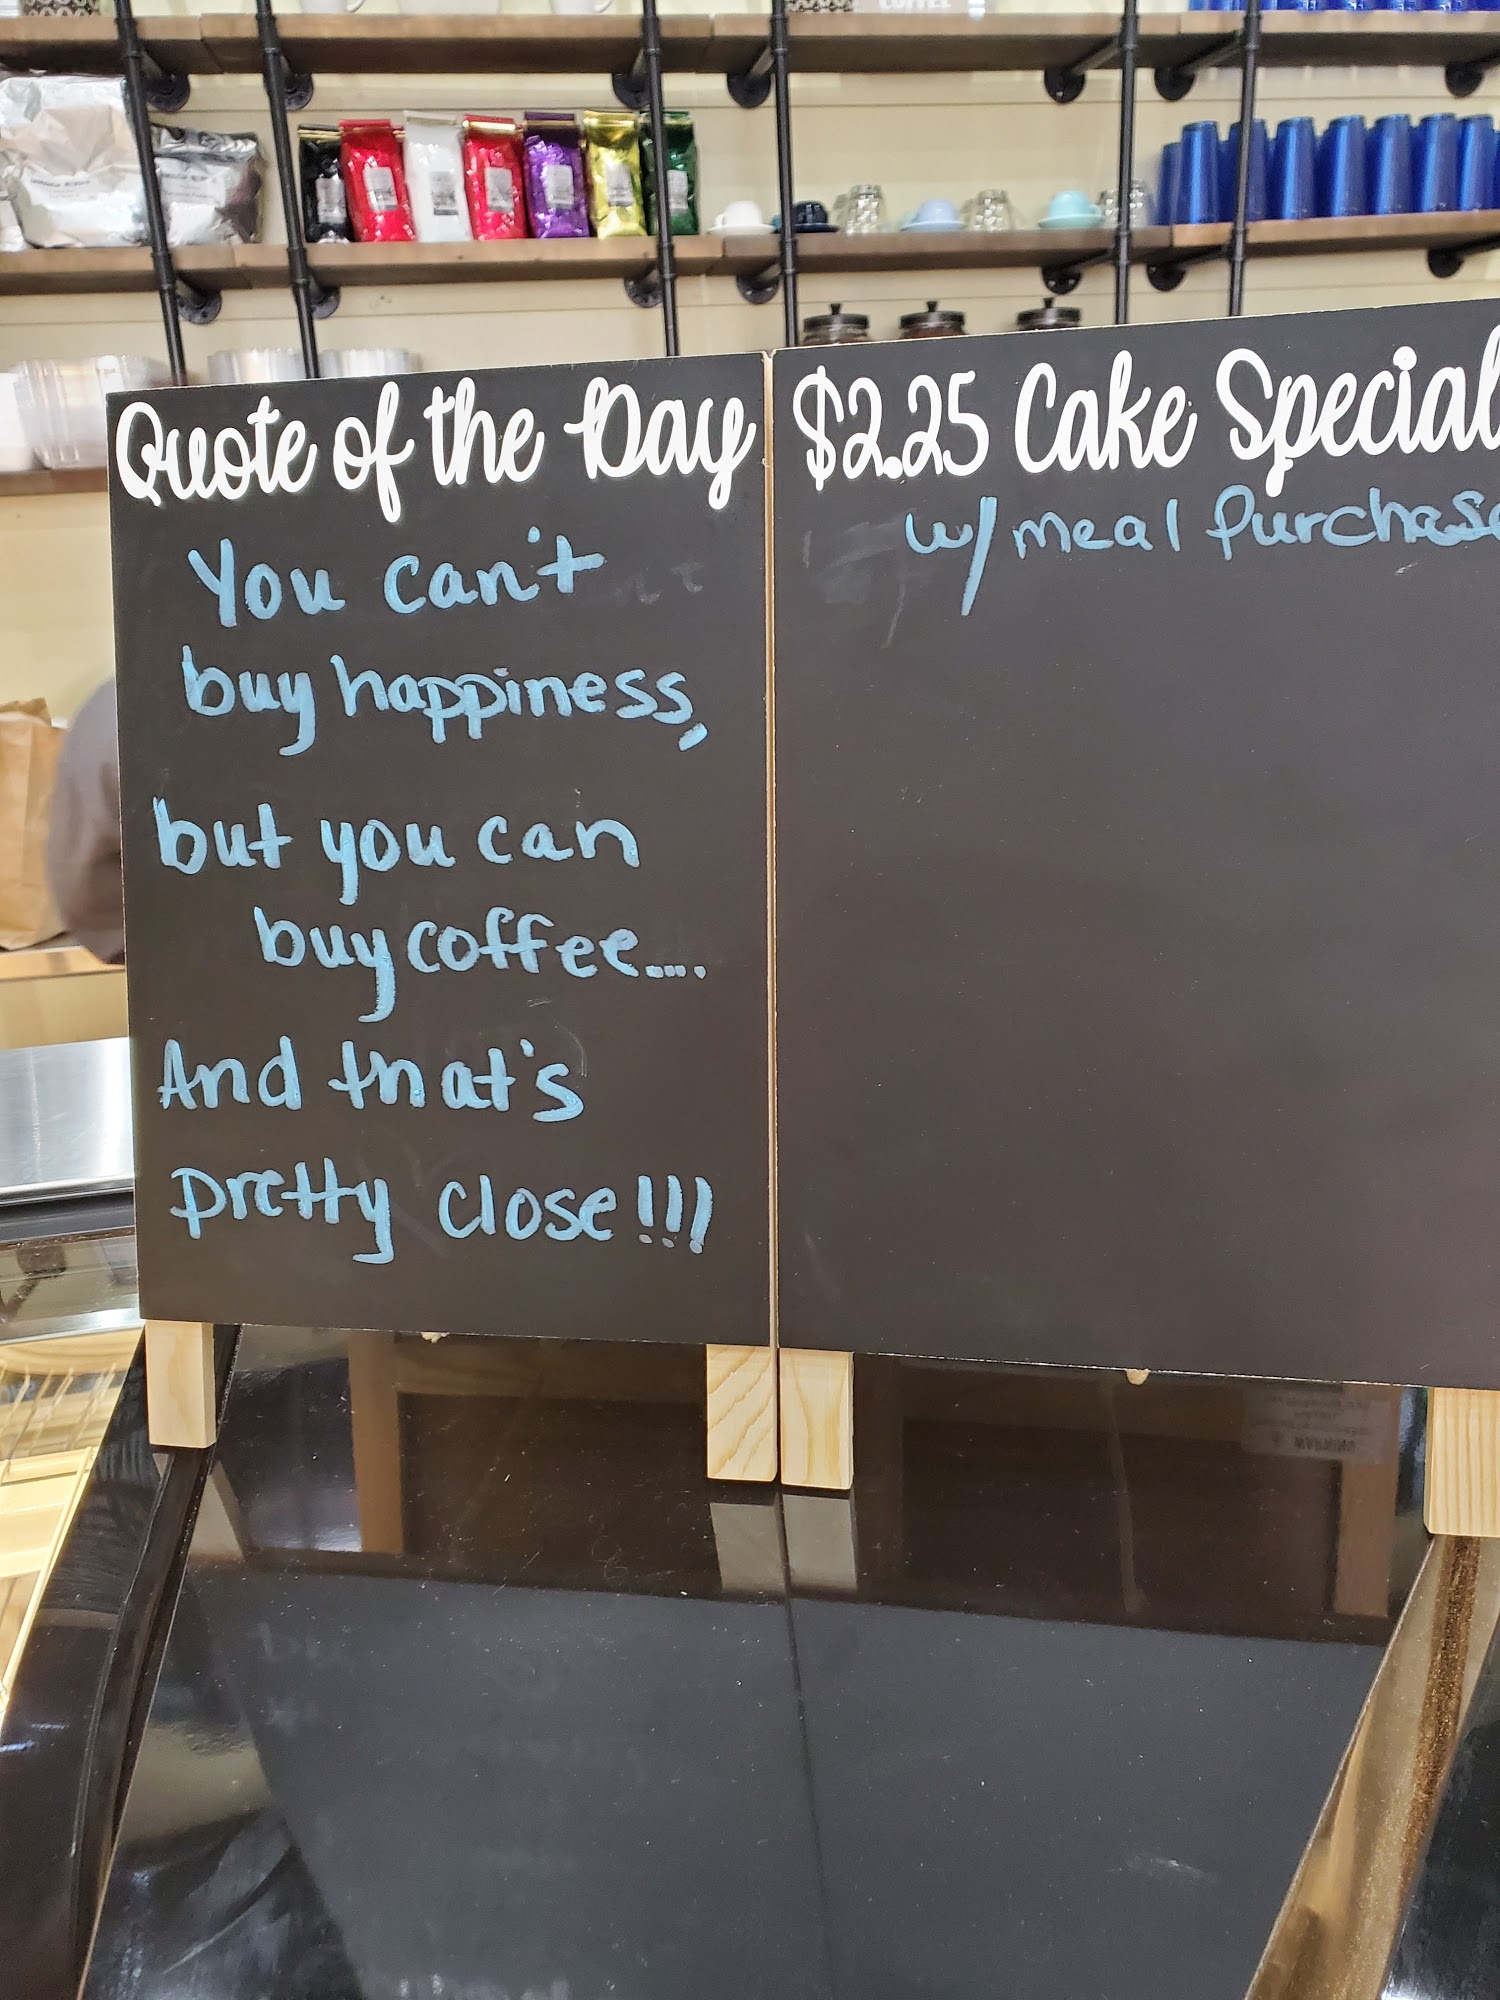 COFFEE
Quote of the Day
You can't
buy happiness,
but you can
buy coffee....
And that's
pretty close!!!
$2.25 Cake Special
w/ meal Purchase